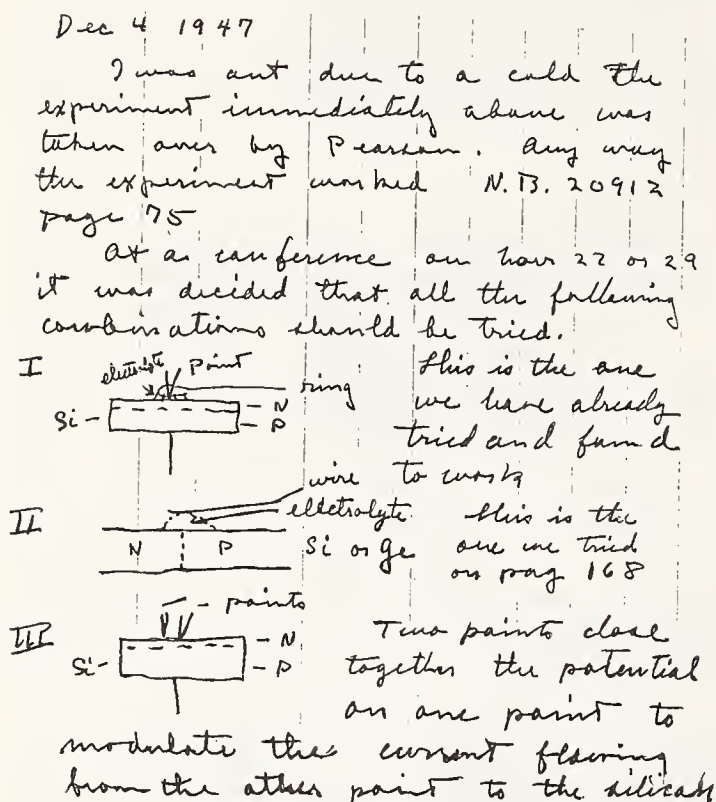 Dec 4 1947
I was out due to a cold the
experiment immediately above was
taken over by Pearson. Any way
the experiment worked N.B. 20912
page 75
At a conference on Nov 22 or 29
it was decided that all the following
combinations should be tried.
I
electrolyte point
ring
Si - N
- P
This is the one
we have already
tried and found
to work
II
wire
electrolyte
N P
Si or Ge
This is the
one we tried
on pag 168
III
- points
Si - N
- P
Two points close
together the potential
on one point to
modulate the current flowing
from the other point to the silicon